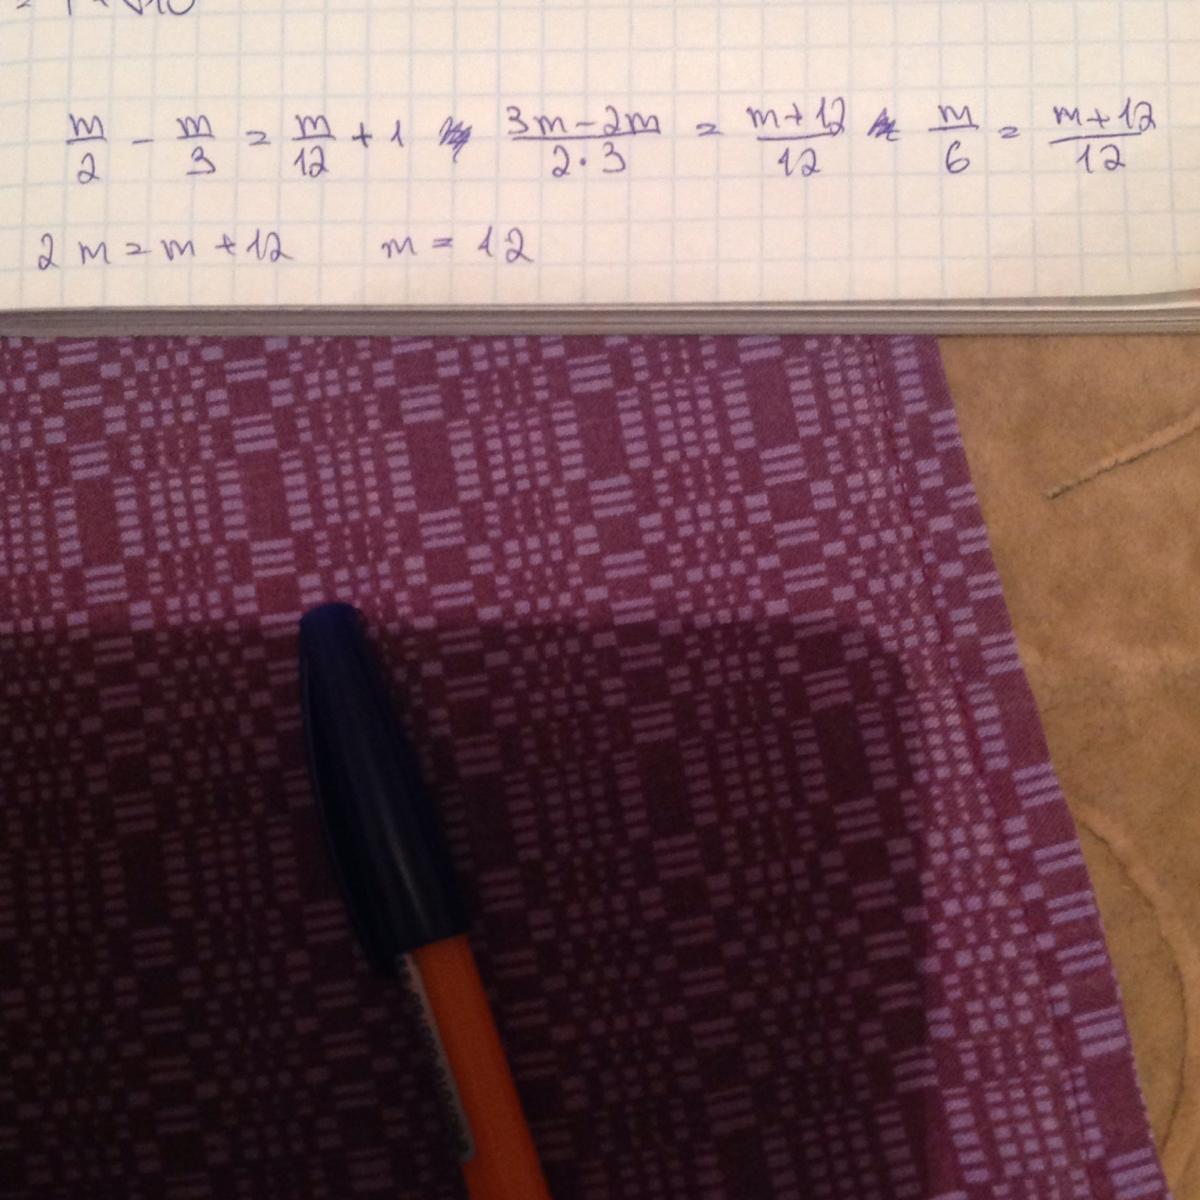 m/2 - m/3 = m/12 + 1 (3m-2m)/(2·3) = (m+12)/12 m/6 = (m+12)/12
2m = m + 12 m = 12